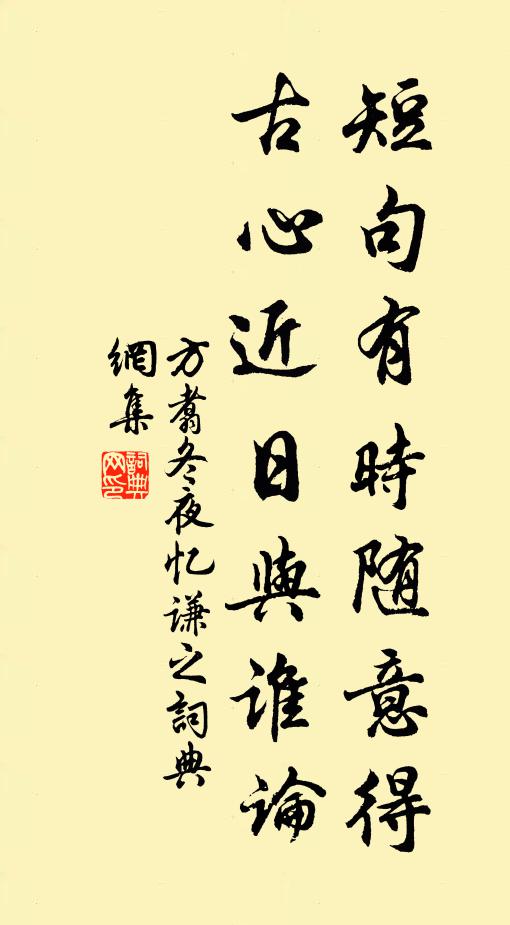 短句有時随意得
古心近日與誰論
方翥冬夜忆谦之詞典
網集
詞典
网印